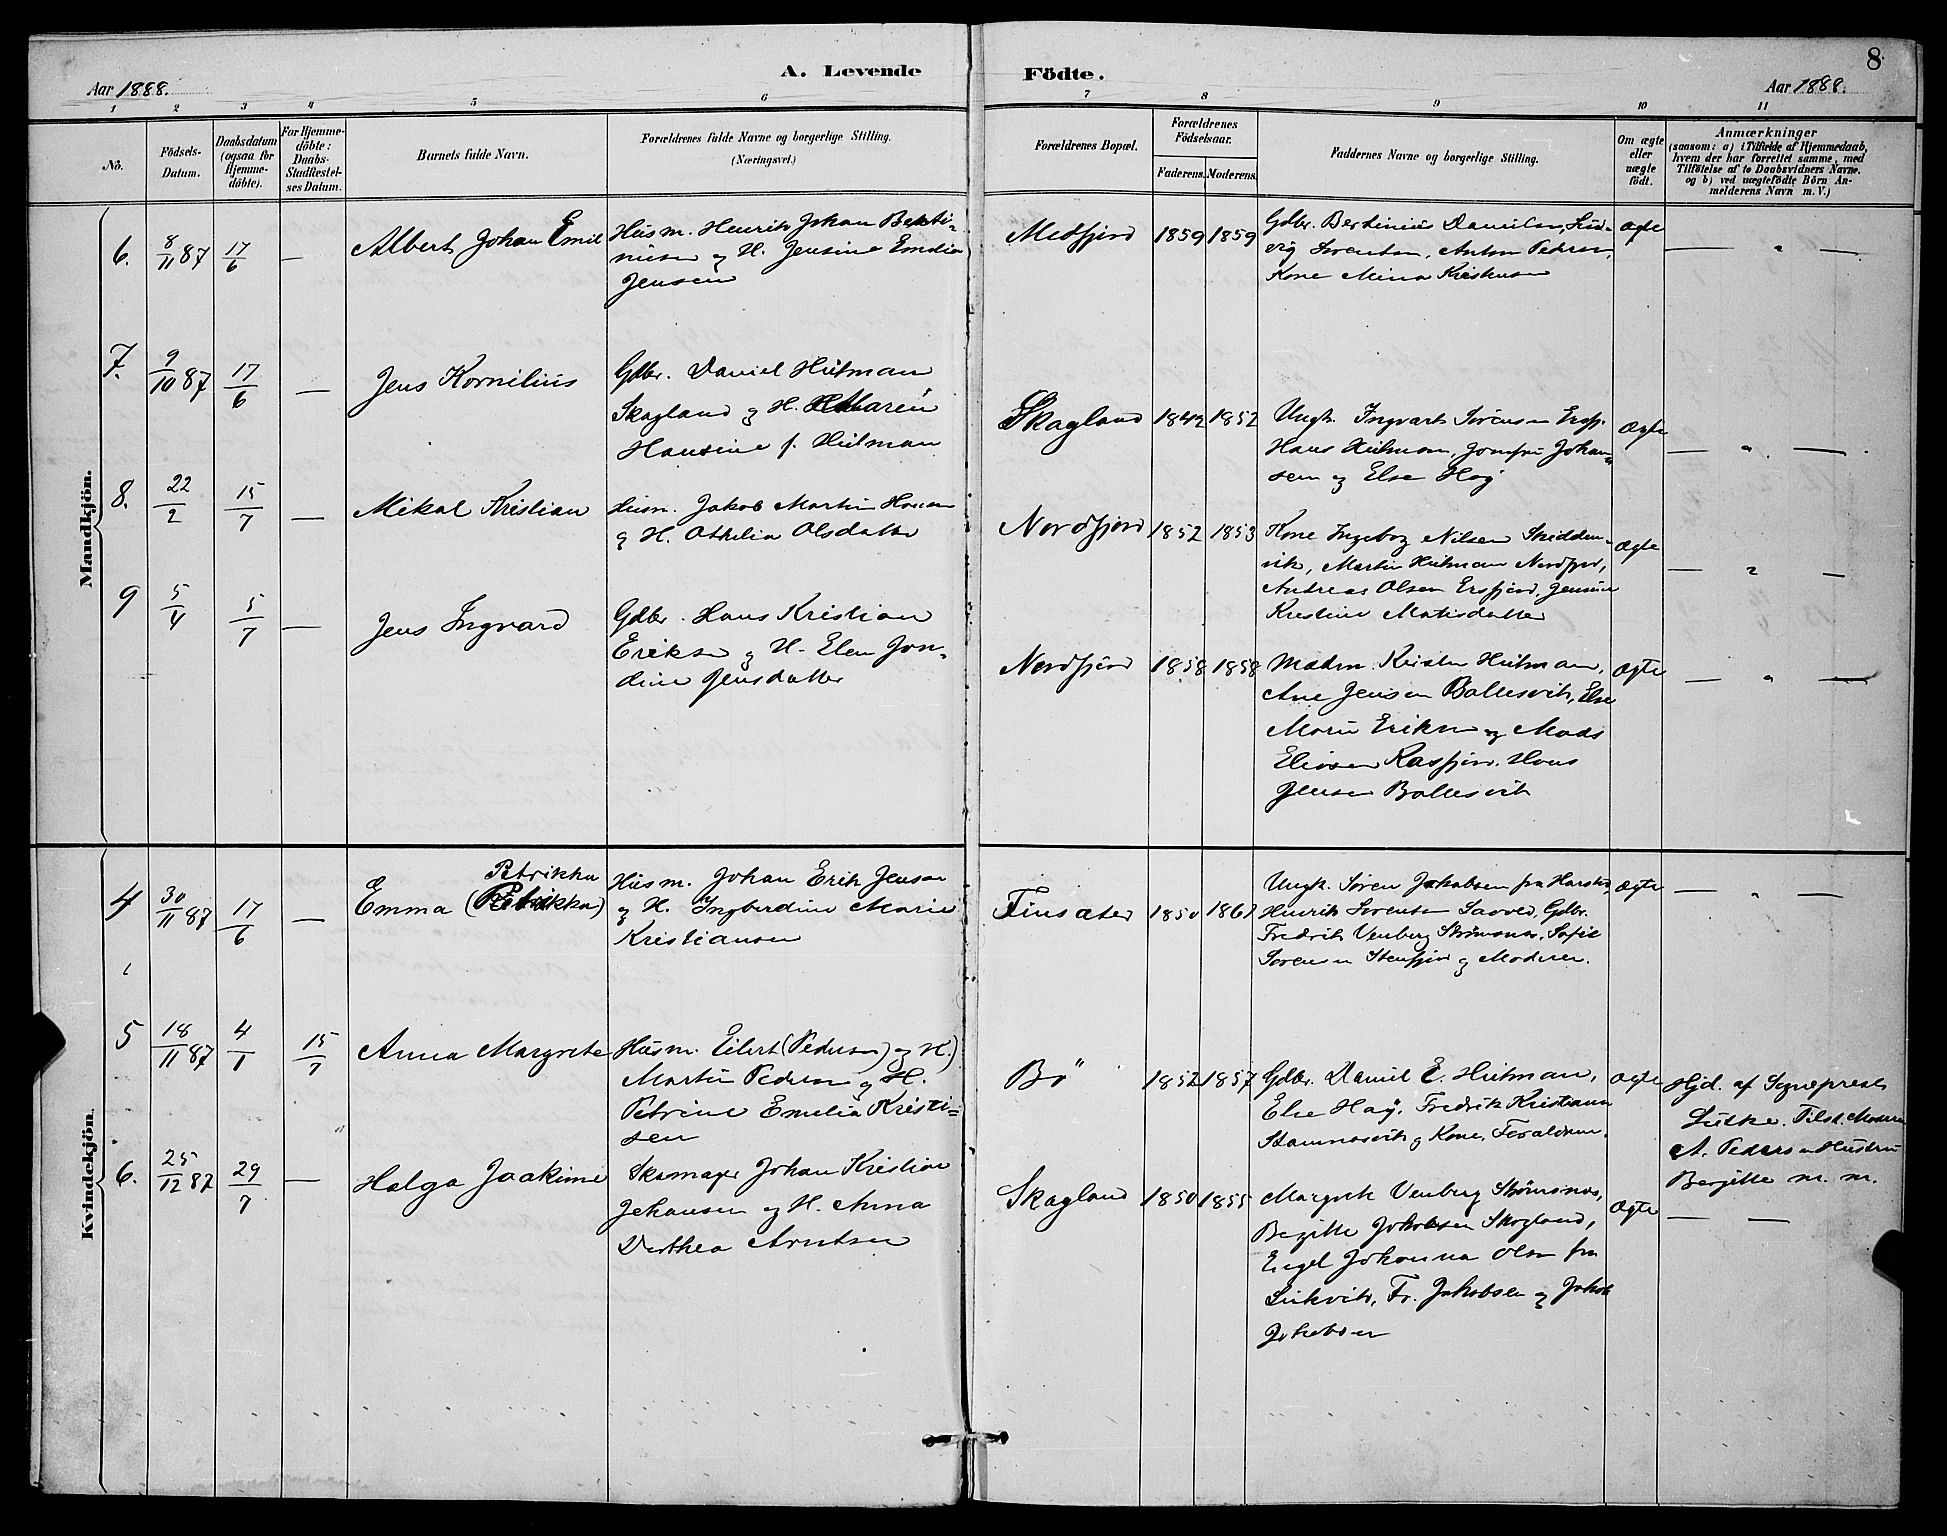 8
A. Levende Födte.
Aar 1888.
Aar 1888.
1 2 3 4 5 6 7 8 9 10 11
No.
Födsels-
Datum.
Daabsdatum
(ogsaa for
Hjemme-
döbte).
For Hjemme-
döbte:
Daabs-
Stadfæstel-
ses Datum.
Barnets fulde Navn.
Forældrenes fulde Navne og borgerlige Stilling.
(Næringsvei.)
Forældrenes Bopæl.
Forældrenes
Födselsaar.
Faderens. Moderens.
Faddernes Navne og borgerlige Stilling.
Om ægte
eller
uægte
födt.
Anmærkninger
(saasom: a) i Tilfælde af Hjemmedaab,
hvem der har forrettet samme, med
Tilföielse af to Daabsvidners Navne.
og b) ved uægtefödte Börn An-
melderens Navn m. V.)
Mandkjön.
6. 8/11 87 17/6 — Albert Johan Emil
Husm. Henrik Johan Berti-
niusen og H. Jensine Emelie
Jensen
Medfjord 1859 1859
Gdbr. Bertinius Danielsen, Lud-
vig Sørensen, Anton Pedersen,
Kone Mina Kristiansen
Ægte — " —
7. 9/10 87 17/6 — Jens Kornelius
Gdbr. Daniel Hutman
Skagland og H. Maren
Hansine f. Hutman
Skagland 1842 1852
Ungk. Ingvart Sørensen Ersfj.
Hans Hutman, Jomfru Johan-
sen og Else Høg
Ægte — " —
8. 22/2 15/7 — Mikal Kristian
Husm. Jakob Martin Hansen
og H. Othelia Olsdatter
Nordfjord 1852 1853
Kone Ingeborg Nilsen Skidden-
vik, Martin Hutman Nordfjord,
Andreas Olsen Ersfjord, Jensine
Kristine Matisdatter
Ægte — " —
9 5/4 5/7 — Jens Ingvard
Gdbr. Hans Kristian
Eriksen og H. Elen Jon-
dine Jensdatter
Nordfjord 1858 1858
Madm. Kirsten Hutman,
Ane Jensen Ballesvik, Else
Marie Eriksen og Mads
Eliasen Kasfjord. Hans
Jensen Ballesvik
Ægte — " —
Kvindekjön.
4 30/11 87 17/6 — Petrikka
Emma (Petrikka)
Husm. Johan Erik Jensen
og H. Ingberdine Marie
Kristiansen
Finsæter 1850 1861
Ungk. Søren Jakobsen fra Harstad,
Henrik Sørensen Gdbr.
Fredrik Venberg Strømsnes, Sofie
Sørensen Stenfjord og Moderen.
Ægte — " —
5 18/11 87 4/1 15/7 Anna Margrete
Husm. Eilert (Pedersen) og H.)
Martin Pedersen og H.
Petrine Emelia Kristi-
sen
Bø 1852 1857
Gdbr. Daniel E. Hutman,
Else Høg, Fredrik Kristiansen
Stamnesvik og Kone, Foraldrene.
Ægte
Hjd. af Sogneprest
Lutke. Tilst. Moderen
A. Pedersen Hustru
Bergitte m. m.
6. 25/12 87 29/7 — Helga Joakime
Skomager Johan Kristian
Johansen og H. Anna
Dorthea Arntsen
Skagland 1850 1855
Margrete Venberg Strømsnes,
Begitte Jakobsen Skogland,
Engel Johanna Olsen fra
Fr. Jakobsen og Jakob
Jakobsen
Ægte — —